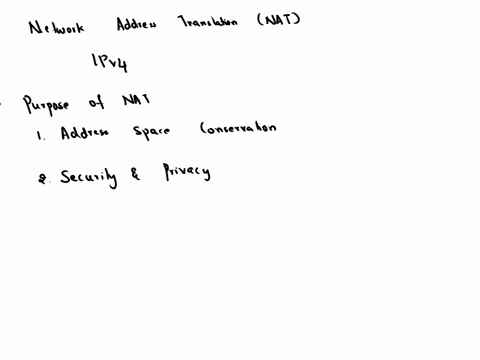 Network Address Translation (NAT)
IPv4
Purpose of NAT
1. Address Space Conservation
2. Security & Privacy